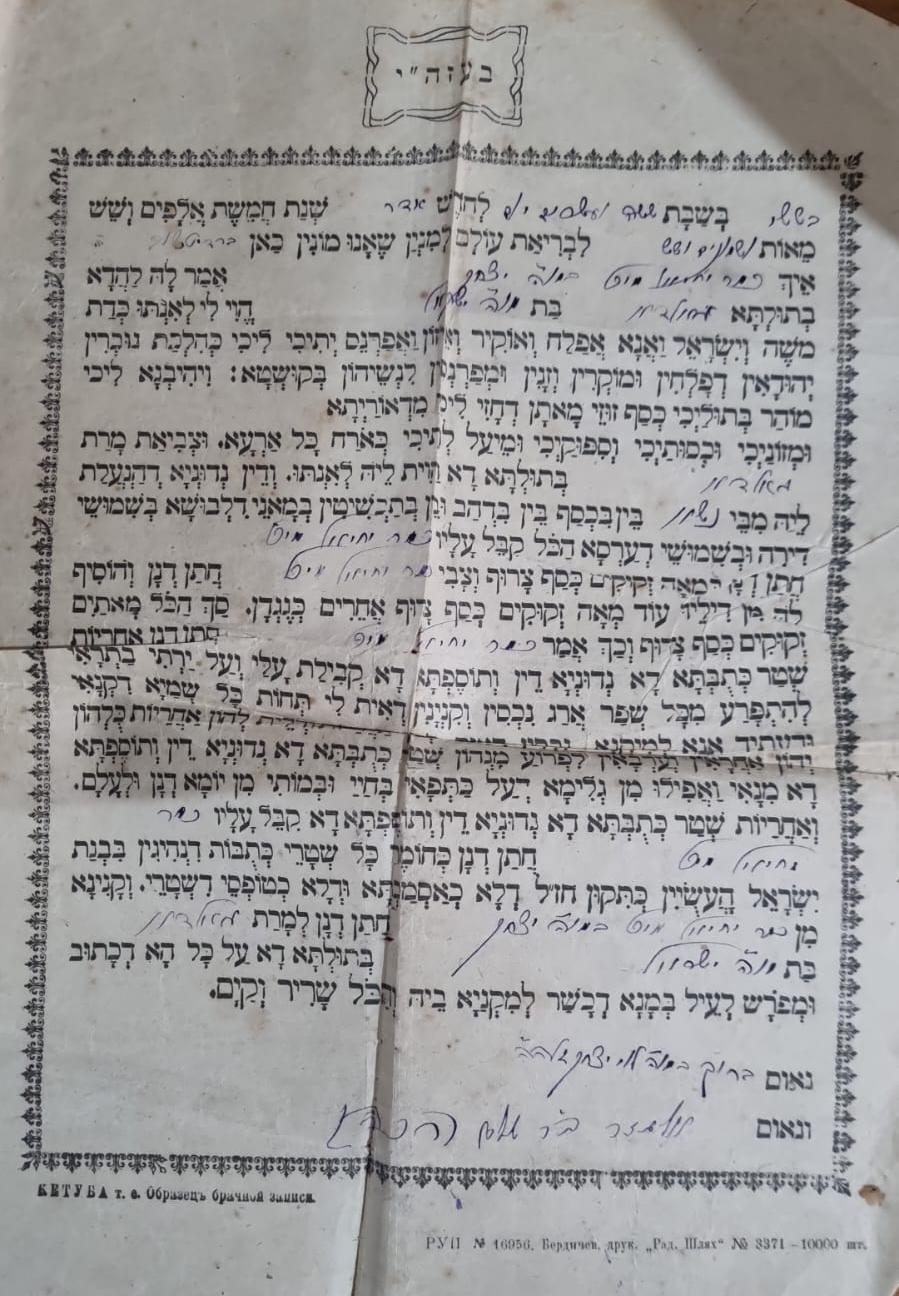 בעזה"י
בששי בְּשַׁבָּת ששה ועשרים יום לְחֹדֶשׁ אדר שְׁנַת חֲמֵשֶׁת אֲלָפִים וְשֵׁשׁ
מֵאוֹת ושמונים ושש לִבְרִיאַת עוֹלָם לְמִנְיָן שֶׁאָנוּ מוֹנִין כַּאן
אֵיךְ כמר יחיאל במוה יצחק אֲמַר לָהּ לַהֲדָא
בְּתוּלְתָּא בַּת מוה ישראל הֱוִי לִי לְאִנְתּוּ כְּדַת
משֶׁה וְיִשְׂרָאֵל וַאֲנָא אֶפְלַח וְאוֹקִיר וְאֵזוֹן וַאֲפַרְנֵס יָתִיכִי לִיכִי כְּהִלְכַת גּוּבְרִין
יְהוּדָאִין דְּפָלְחִין וּמוֹקְרִין וְזָנִין וּמְפַרְנְסִין לִנְשֵׁיהוֹן בְּקוּשְׁטָא: וִיהִיבְנָא לִיכִי
מוֹהַר בְּתוּלַיְכִי כְּסַף זוּזֵי מָאתָן דְּחָזֵי לִיכִי מִדְאוֹרַיְתָא
וּמְזוֹנַיְכִי וּכְסוּתַיְכִי וְסִפּוּקַיְכִי וּמֵיעַל לְוָתֵיכִי כְּאֹרַח כָּל אַרְעָא. וּצְבִיאַת מָרַת
בְּתוּלְתָּא דָא הֲוֵית לֵיהּ לְאִנְתּוּ. וְדֵין נְדוּנְיָא דְּהַנְעֲלַת
לֵיהּ מִבֵּי בֵּין בִּכְסַף בֵּין בִּדְהַב וּבֵין בְּתַכְשִׁיטִין בְּמָאנֵי דִלְבוּשָׁא בְּשִׁמּוּשֵׁי
דִירָה וּבְשִׁמּוּשֵׁי דְעַרְסָא הַכֹּל קִבֵּל עָלָיו כמר יחיאל
חֲתַן דְּנָן בְּמֵאָה זְקוּקִים כֶּסֶף צָרוּף וְצָבִי כמר יחיאל חֲתַן דְּנָן וְהוֹסִיף
לָהּ מִן דִּילֵיהּ עוֹד מֵאָה זְקוּקִים כֶּסֶף צָרוּף אֲחֵרִים כְּנֶגְדָּן. סַךְ הַכֹּל מָאתַיִם
זְקוּקִים כֶּסֶף צָרוּף וְכַךְ אָמַר כמר יחיאל חֲתַן דְּנָן אַחֲרָיוּת
שְׁטַר כְּתֻבְּתָּא דָא נְדוּנְיָא דֵין וְתוֹסֶפְתָּא דָא קַבִּילַת עָלַי וְעַל יַרְתַי בַתְרָאי
לְהִתְפְּרַע מִכָּל שְׁפַר אֲרַג נִכְסִין וְקִנְיָנִין דְּאִית לִי תְּחוֹת כָּל שְׁמַיָּא דִּקְנָאִי
וּדְעָתִיד אֲנָא לְמִקְנָא נִכְסִין אַחֲרָיוּת כֻּלְּהוֹן
יְהוֹן אַחֲרָאִין וְעַרְבָאִין לִפְרוֹעַ מִנְּהוֹן שְׁטַר כְּתֻבְּתָּא דָא נְדוּנְיָא דֵין וְתוֹסֶפְתָּא
דָא מִנַּאי וַאֲפִילוּ מִן גְּלִימָא דְעַל כַּתְפָּאי בְּחַיַּי וּבְמוֹתִי מִן יוֹמָא דְנָן וּלְעָלַם.
וְאַחֲרָיוּת שְׁטַר כְּתֻבְּתָּא דָא נְדוּנְיָא דֵין וְתוֹסֶפְתָּא דָא קִבֵּל עָלָיו כמר
יחיאל חֲתַן דְּנָן כְּחוֹמֶר כָּל שִׁטְרֵי כְתֻבּוֹת דִּנְהִיגִין בִּבְנַת
יִשְׂרָאֵל הָעֲשׂוּיִין כְּתִקּוּן חז"ל דְּלָא כְאַסְמַכְתָּא וּדְלָא כְטוֹפְסֵי דִשְׁטָרֵי. וְקָנִינָא
מִן כמר יחיאל במוה יצחק חֲתַן דְּנָן לְמָרַת
בַּת מוה ישראל בְּתוּלְתָּא דָא עַל כָּל הָא דְּכָתוּב
וּמְפֹרָשׁ לְעֵיל בְּמָנָא דְּכָשֵׁר לְמִקְנְיָא בֵּיהּ וְהַכֹּל שָׁרִיר וְקַיָּם.
נאום ברוך במוה לוי יצחק
ונאום
КЕТУБА т. е. Образецъ брачной записи.
РУП № 16956. Бердичев, друк. „Рад. Шлях“ № 3371 – 10000 шт.